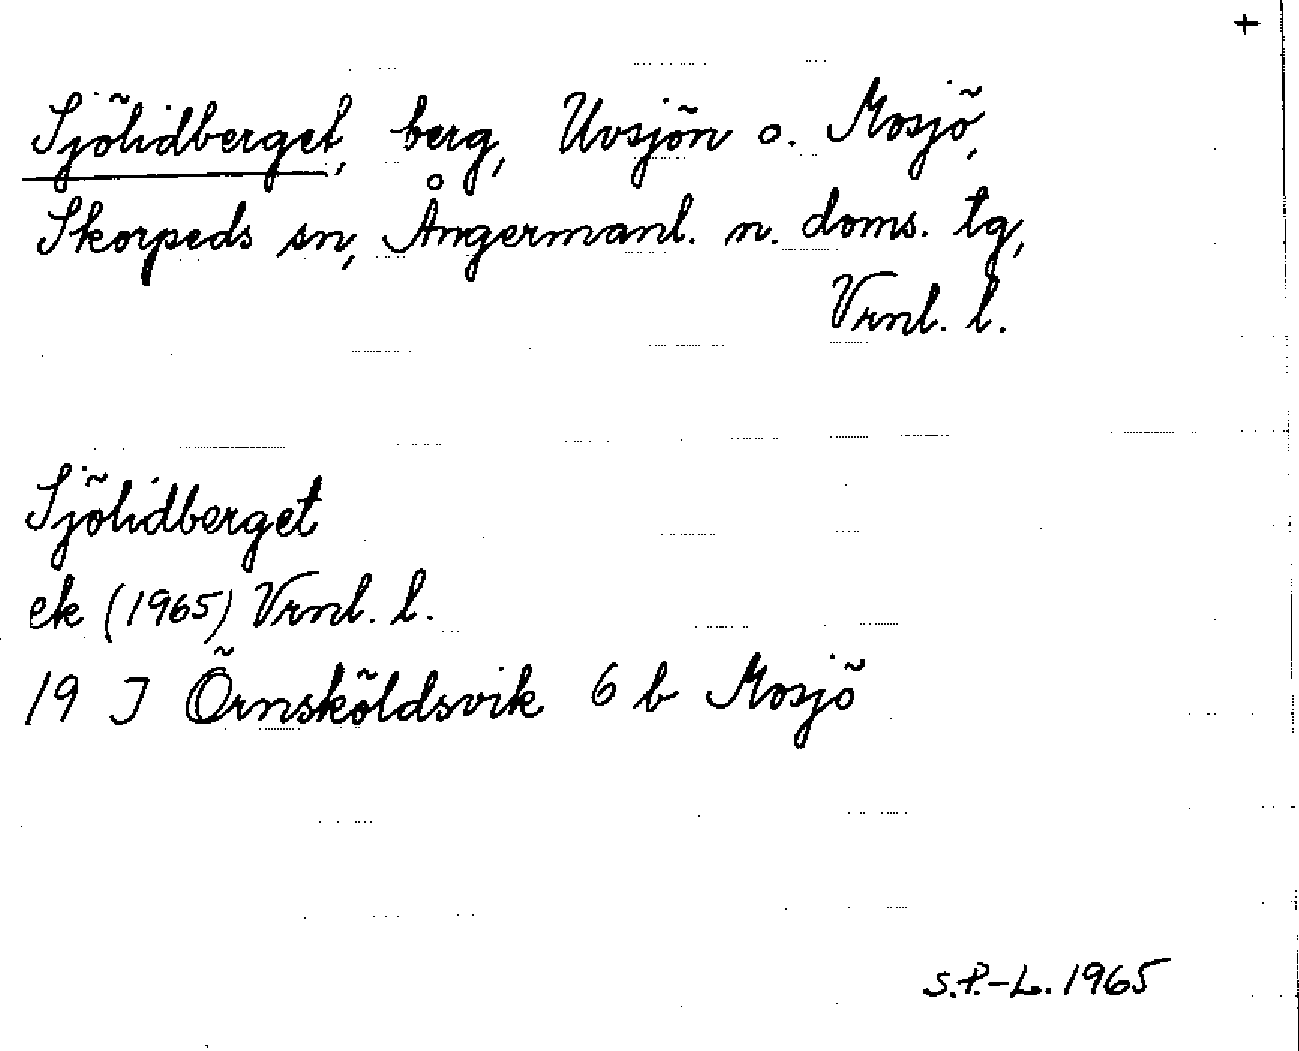 +
Sjölidberget, berg, Uvsjön o. Mosjö,
Skorpeds sn, Ångermanl. n. doms. tg,
Vrnl. l.
Sjölidberget
ek (1965) Vrnl. l.
19 J Örnsköldsvik 6 b Mosjö
S.P.-L. 1965